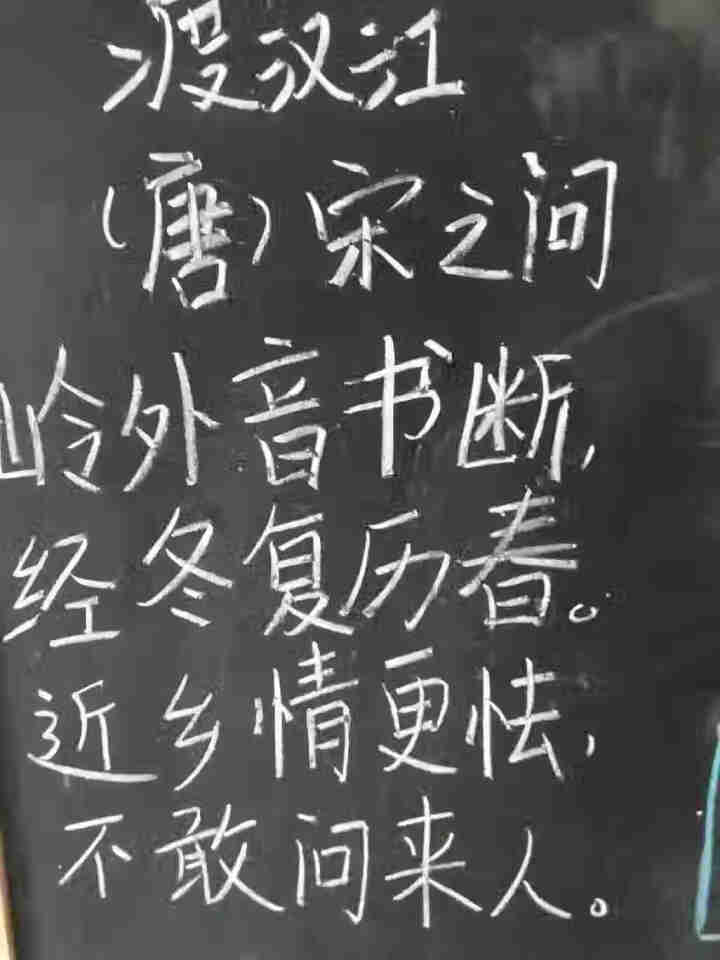 渡汉江
（唐）宋之问
岭外音书断，
经冬复历春。
近乡情更怯，
不敢问来人。